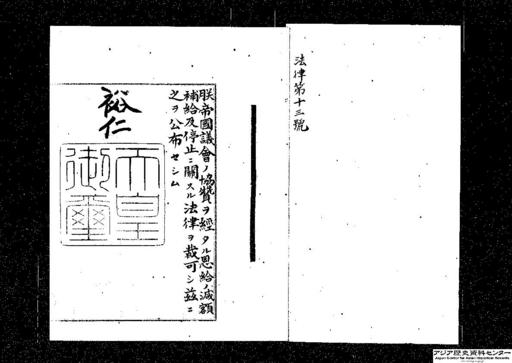 法律第十三號
朕帝國議會ノ協贊ヲ經タル恩給ノ減額
補給及停止ニ關スル法律ヲ裁可シ茲ニ
之ヲ公布セシム
裕仁
天皇
御璽
アジア歴史資料センター
Japan Center for Asian Historical Records